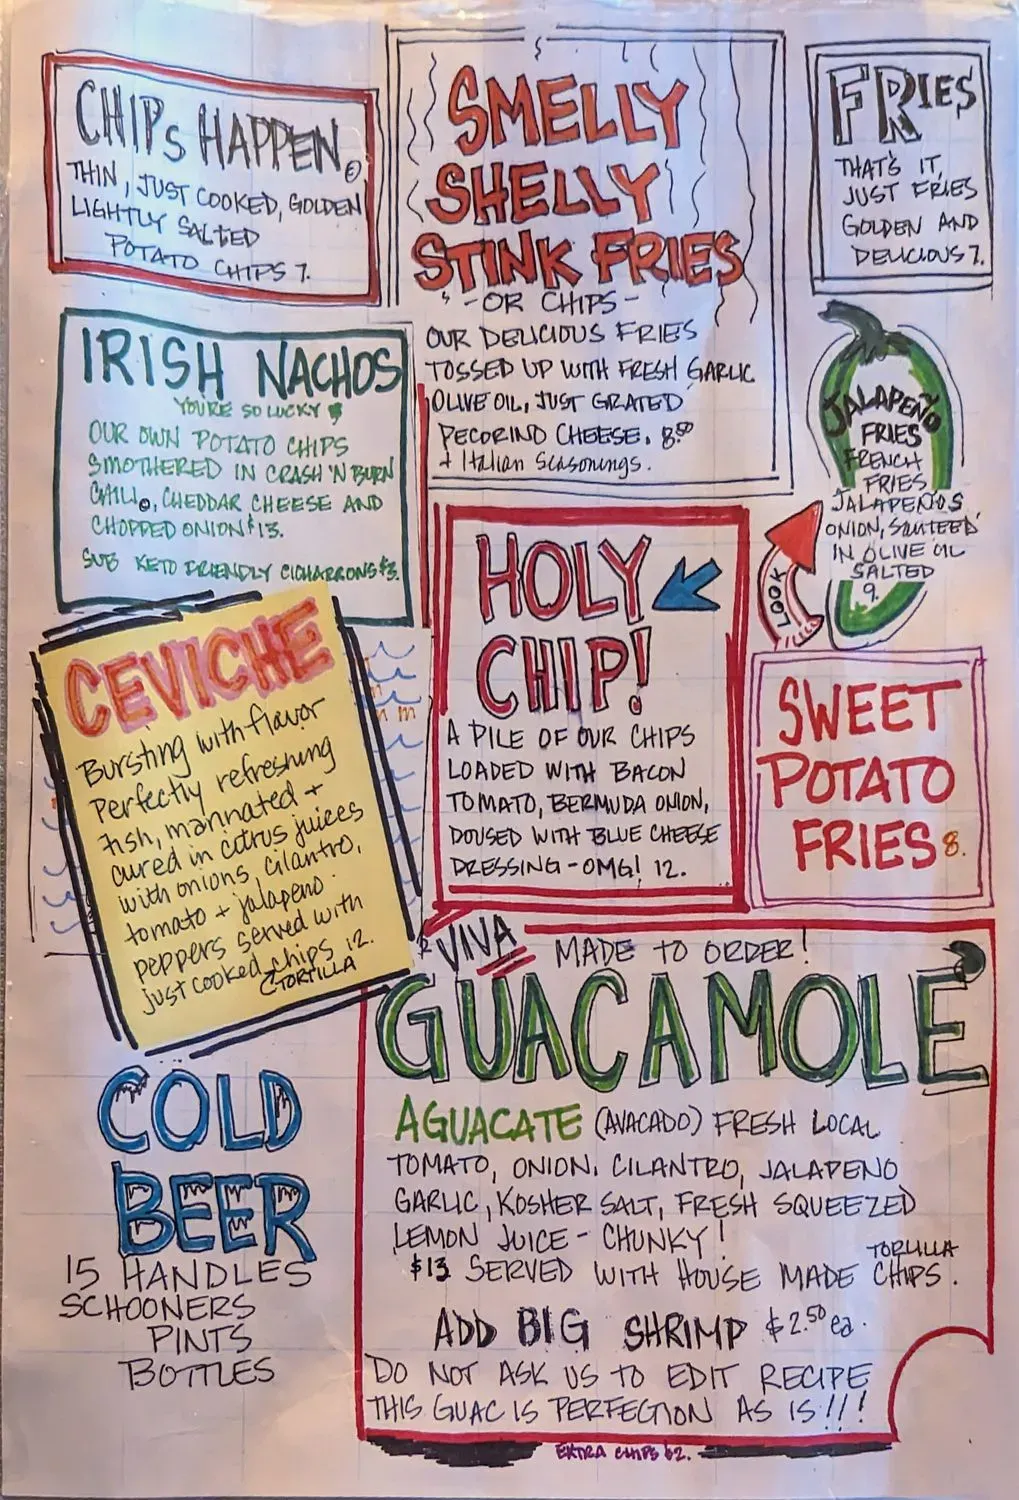 CHIPS HAPPEN ©
THIN, JUST COOKED, GOLDEN
LIGHTLY SALTED
POTATO CHIPS 7.
SMELLY
SHELLY
STINK FRIES
- OR CHIPS -
OUR DELICIOUS FRIES
TOSSED UP WITH FRESH GARLIC
OLIVE OIL, JUST GRATED
PECORINO CHEESE. 8.50
+ Italian Seasonings.
FRIES
THAT'S IT,
JUST FRIES
GOLDEN AND
DELICIOUS 7.
IRISH NACHOS
YOU'RE SO LUCKY
OUR OWN POTATO CHIPS
SMOTHERED IN CRASH 'N BURN
CHILI©, CHEDDAR CHEESE AND
CHOPPED ONION $13.
SUB KETO FRIENDLY CICHARRONS $3.
JALAPEÑO
FRIES
FRENCH
FRIES
JALAPEÑOS
ONION, SAUTEED
IN OLIVE OIL
SALTED
9.
LOOK
HOLY
CHIP!
A PILE OF OUR CHIPS
LOADED WITH BACON
TOMATO, BERMUDA ONION,
DOUSED WITH BLUE CHEESE
DRESSING - OMG! 12.
SWEET
POTATO
FRIES 8.
CEVICHE
Bursting with flavor
Perfectly refreshing
fish, marinated +
cured in citrus juices
with onions, cilantro,
tomato + jalapeno
peppers served with
just cooked chips 12.
TORTILLA
VIVA MADE TO ORDER!
GUACAMOLE
AGUACATE (AVACADO) FRESH LOCAL
TOMATO, ONION. CILANTRO, JALAPENO
GARLIC, KOSHER SALT, FRESH SQUEEZED
LEMON JUICE - CHUNKY!
TORLILLA
$13 SERVED WITH HOUSE MADE CHIPS.
ADD BIG SHRIMP $2.50 ea.
DO NOT ASK US TO EDIT RECIPE
THIS GUAC IS PERFECTION AS IS!!!
EXTRA CHIPS $2.
COLD
BEER
15 HANDLES
SCHOONERS
PINTS
BOTTLES